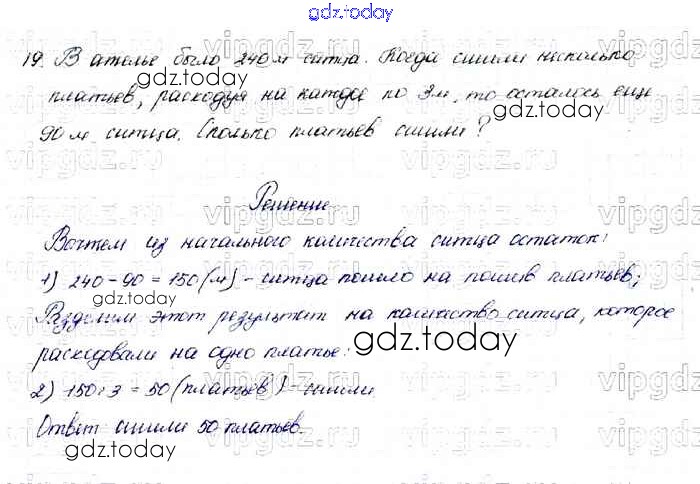 gdz.today
19. В ателье было 240 м ситца. Когда сшили несколько
платьев, расходуя на каждое по 3 м, то осталось еще
90 м ситца. Сколько платьев сшили?
Решение
Вычтем из начального количества ситца остаток:
1) 240 - 90 = 150 (м) - ситца пошло на пошив платьев;
Разделим этот результат на количество ситца, которое
расходовали на одно платье:
2) 150 : 3 = 50 (платьев) - сшили.
Ответ сшили 50 платьев.
gdz.today